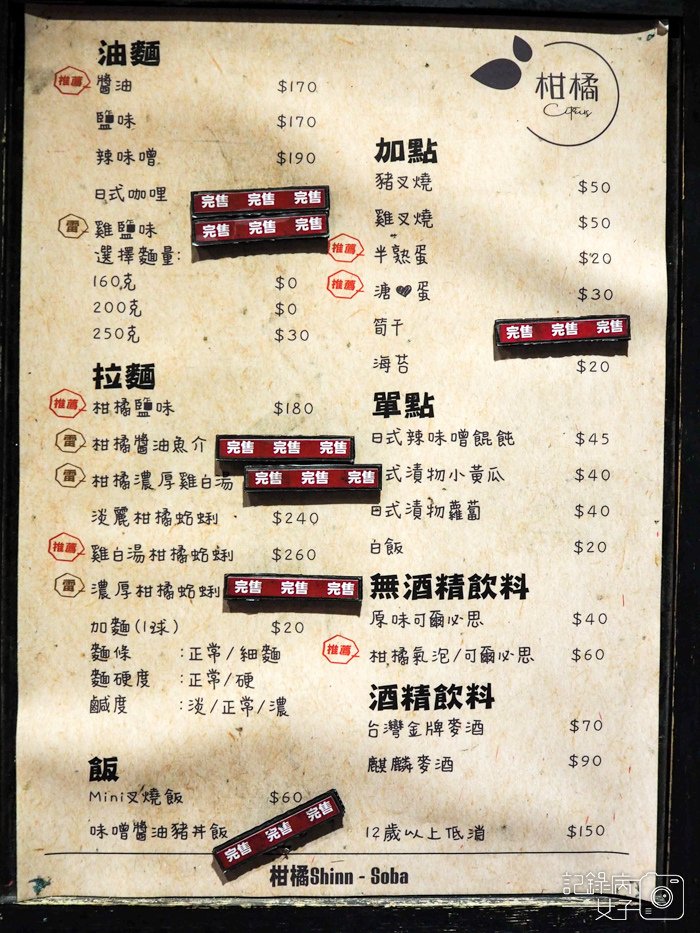 柑橘
Citrus
油麵
推薦 醬油 $170
鹽味 $170
辣味噌 $190
日式咖哩 完售 完售 完售
雷 雞鹽味 完售 完售 完售
選擇麵量:
160克 $0
200克 $0
250克 $30
拉麵
推薦 柑橘鹽味 $180
雷 柑橘醬油魚介 完售 完售 完售
雷 柑橘濃厚雞白湯 完售 完售 完售
淡麗柑橘蛤蜊 $240
推薦 雞白湯柑橘蛤蜊 $260
雷 濃厚柑橘蛤蜊 完售 完售 完售
加麵(1球) $20
麵條 :正常/細麵
麵硬度 :正常/硬
鹹度 :淡/正常/濃
飯
Mini叉燒飯 $60
味噌醬油豬丼飯 完售 完售 完售
加點
豬叉燒 $50
雞叉燒 $50
推薦 半熟蛋 $20
推薦 溏❤蛋 $30
筍干 完售 完售 完售
海苔 $20
單點
日式辣味噌餛飩 $45
式漬物小黃瓜 $40
日式漬物蘿蔔 $40
白飯 $20
無酒精飲料
原味可爾必思 $40
推薦 柑橘氣泡/可爾必思 $60
酒精飲料
台灣金牌麥酒 $70
麒麟麥酒 $90
12歲以上低消 $150
柑橘Shinn - Soba
記錄肉女子